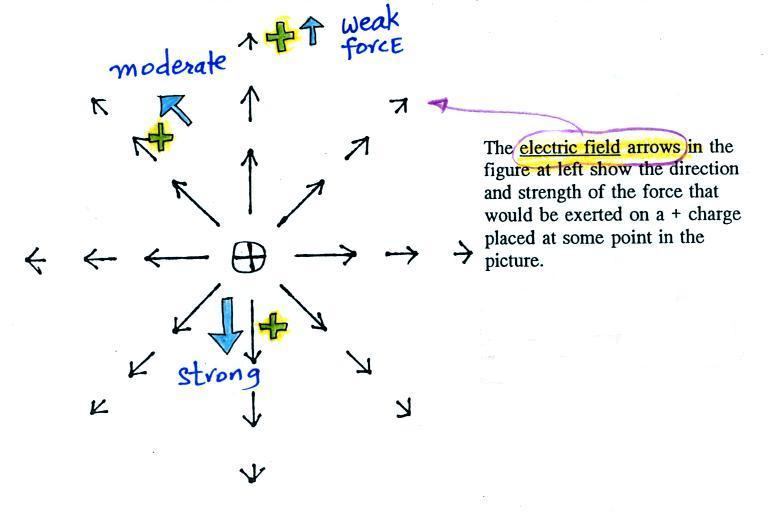 weak
forcE
moderate
The electric field arrows in the
figure at left show the direction
and strength of the force that
would be exerted on a + charge
placed at some point in the
picture.
strong